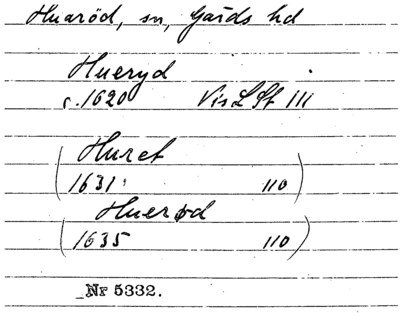 Huaröd, sn, Gärds hd
Hueryd
c. 1620 Vis L St III
(Huret
1631 110)
(Huerød
1635 110)
Nr 5332.